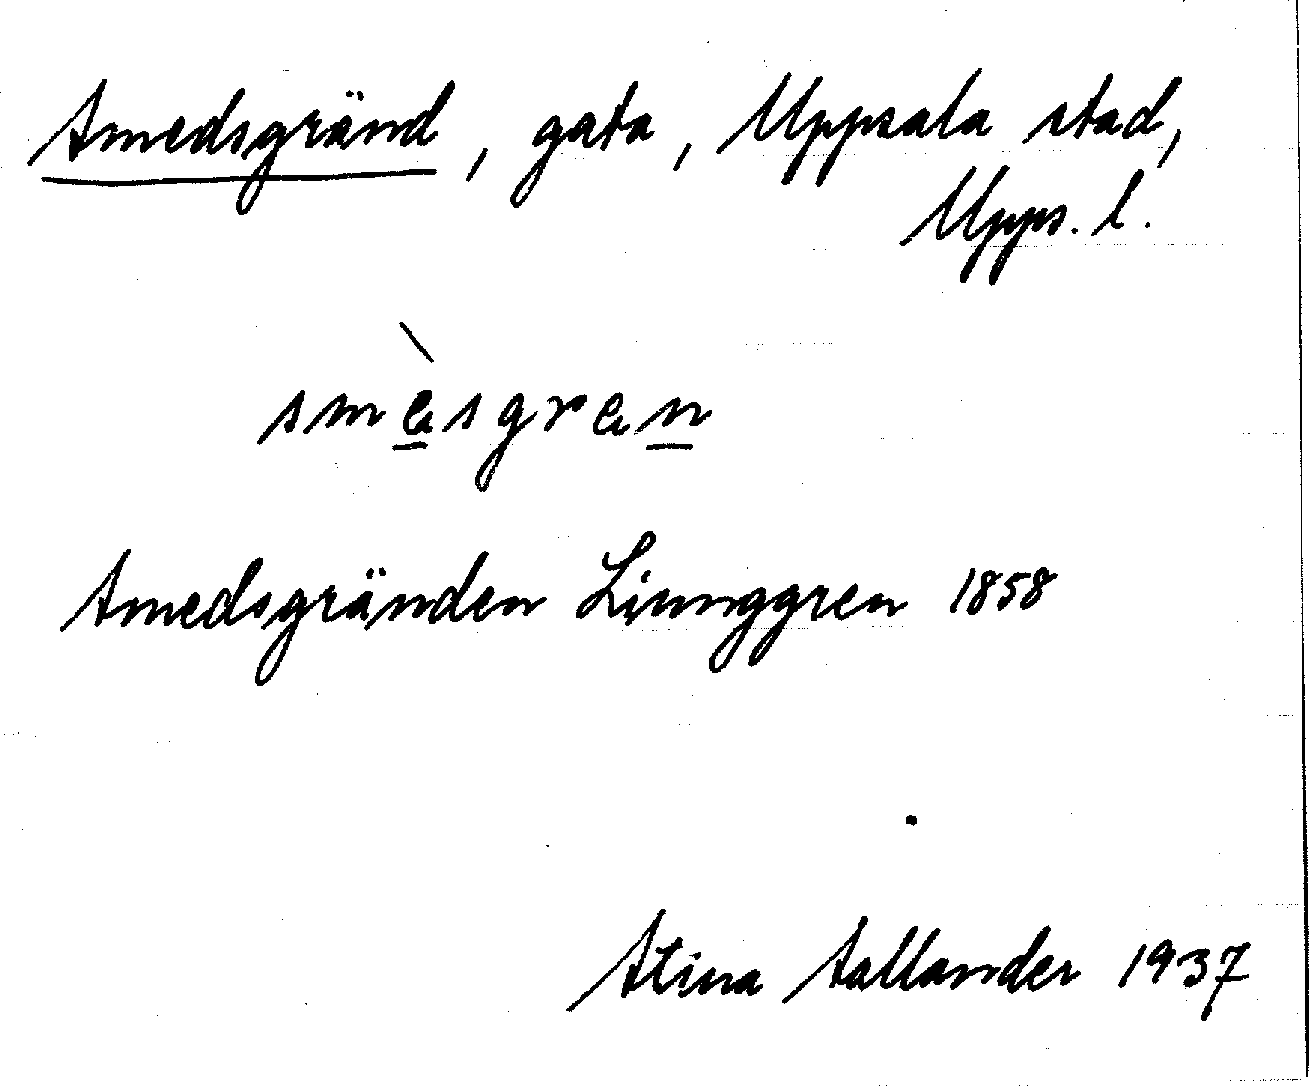 Smedsgränd, gata, Uppsala stad,
Upps. l.
smèsgren
Smedsgränden Ljunggren 1858
Stina Sallander 1937